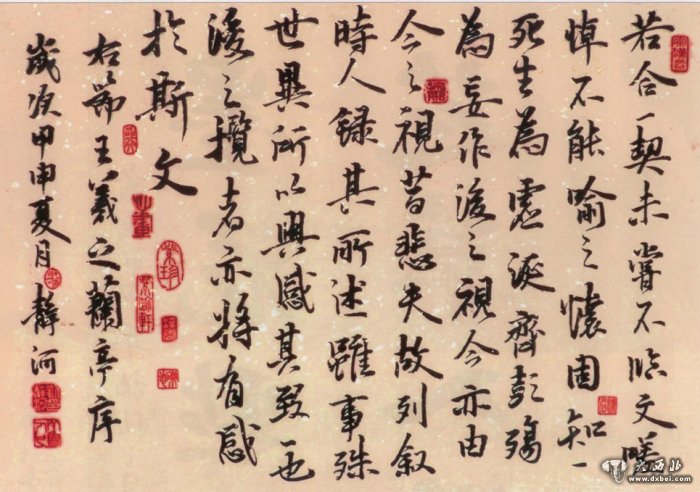 若合一契未嘗不臨文嗟
悼不能喻之懷固知一
死生為虛誕齊彭殤
為妄作後之視今亦由
今之視昔悲夫故列敘
時人錄其所述雖事殊
世異所以興感其致一也
後之攬者亦將有感
於斯文
右節王羲之蘭亭序
歲次甲申夏月靜河
大西北
www.dxbei.com